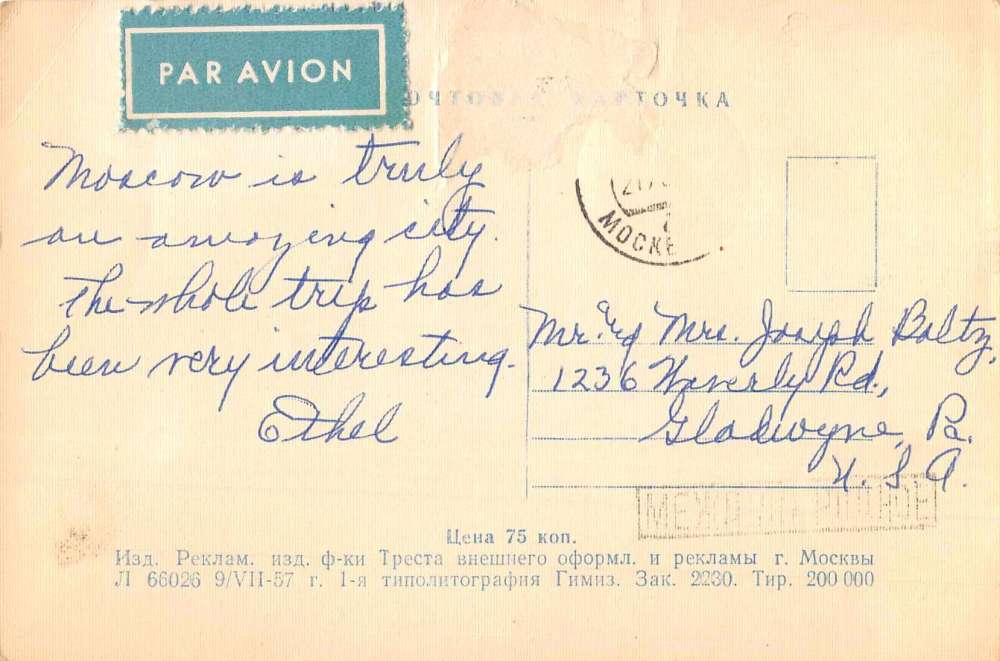 PAR AVION
ПОЧТОВАЯ КАРТОЧКА
Moscow is truly
an amazing city.
The whole trip has
been very interesting.
Ethel
МОСКВ
Mr. & Mrs. Joseph Boltz,
1236 Waverly Rd.,
Gladwyne, Pa.
U. S. A.
Цена 75 коп.
Изд. Реклам. изд. ф-ки Треста внешнего оформл. и рекламы г. Москвы
Л 66026 9/VII-57 г. 1-я типолитография Гимиз. Зак. 2230. Тир. 200 000